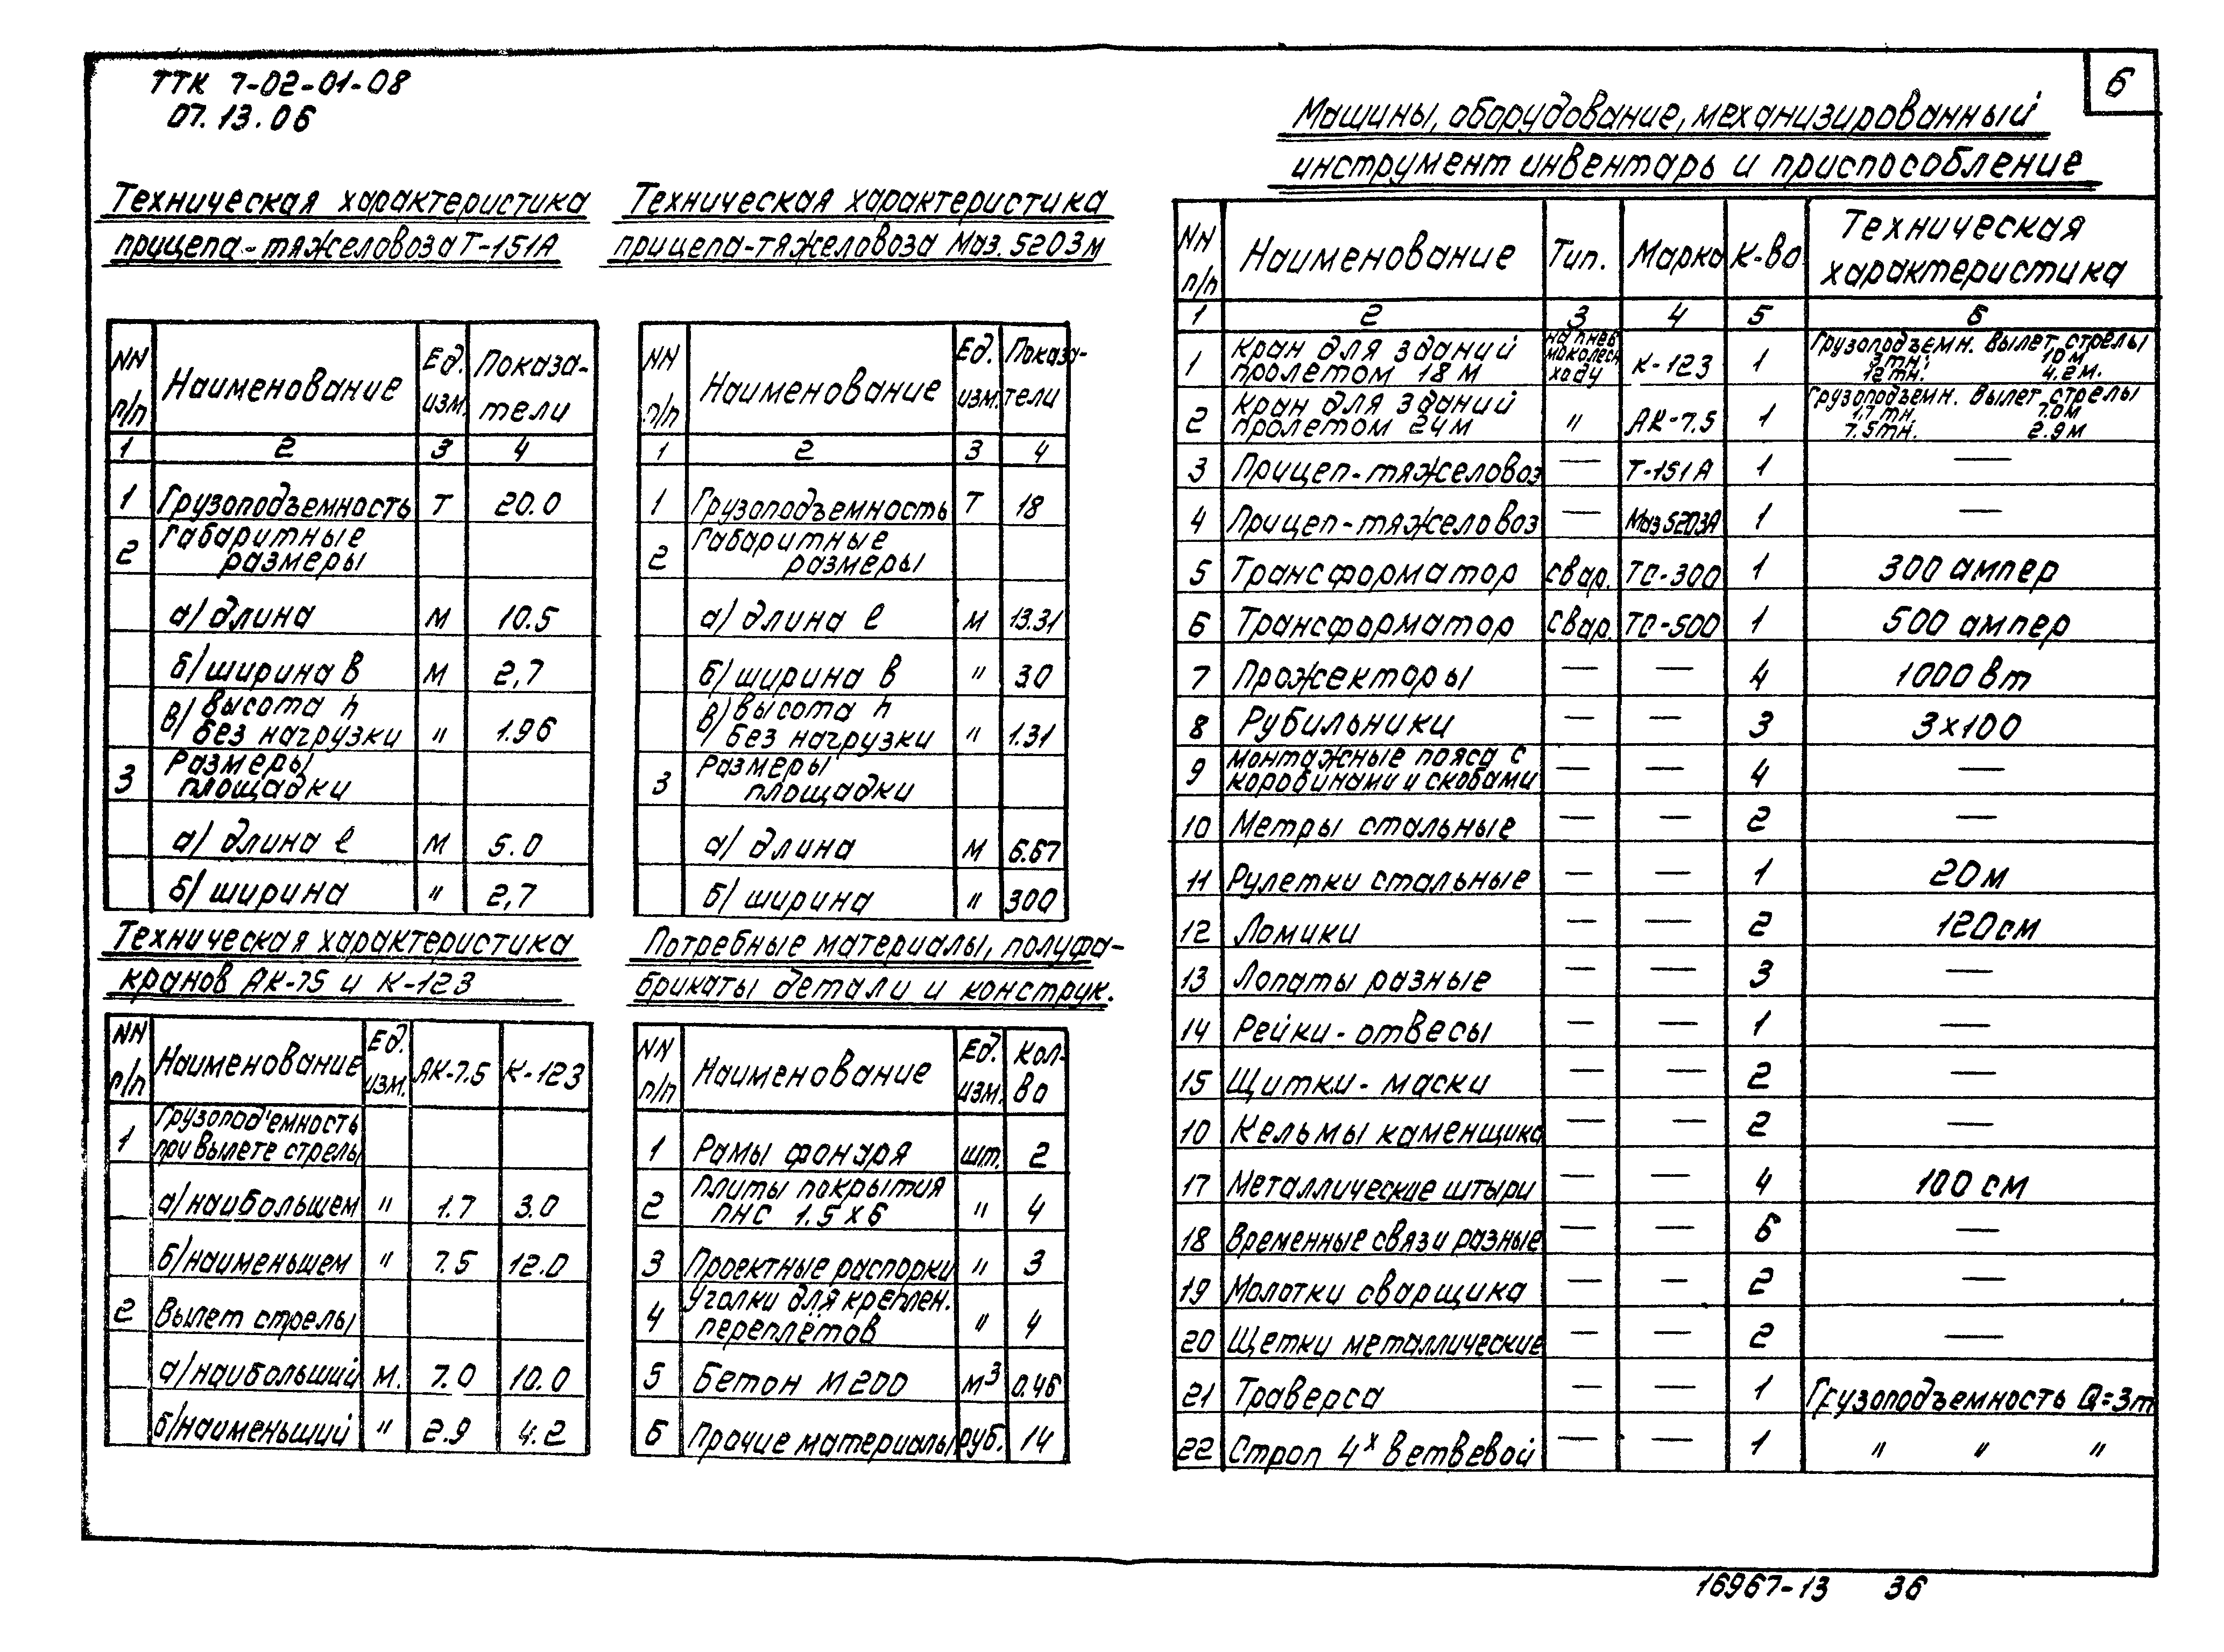 ТТК 7-02-01-08
07.13.06
6
Техническая характеристика
прицепа-тяжеловоза Т-151А
NN п/п Наименование Ед. изм. Показа-тели
1 2 3 4
1 Грузоподъемность Т 20.0
2 Габаритные размеры
а/ длина м 10.5
б/ ширина в м 2,7
в/ высота h без нагрузки " 1.96
3 Размеры площадки
а/ длина ℓ м 5.0
б/ ширина " 2,7
Техническая характеристика
прицепа-тяжеловоза Маз. 5203м
NN п/п Наименование Ед. изм. Показа-тели
1 2 3 4
1 Грузоподъемность Т 18
2 Габаритные размеры
а/ длина ℓ м 13.31
б/ ширина в " 3.0
в/ высота h без нагрузки " 1.31
3 Размеры площадки
а/ длина м 6.67
б/ ширина " 300
Техническая характеристика
кранов АК-75 и К-123
NN п/п Наименование Ед. изм. АК-7.5 К-123
1 Грузопод'емность при вылете стрелы
а/ наибольшем " 1.7 3.0
б/ наименьшем " 7.5 12.0
2 Вылет стрелы
а/ наибольший м. 7.0 10.0
б/ наименьший " 2.9 4.2
Потребные материалы, полуфа-
брикаты детали и конструк.
NN п/п Наименование Ед. изм. Кол-во
1 Рамы фонаря шт. 2
2 Плиты покрытия ПНС 1.5х6 " 4
3 Проектные распорки " 3
4 Уголки для креплен. переплётов " 4
5 Бетон М200 м³ 0.46
6 Прочие материалы руб. 14
Машины, оборудование, механизированный
инструмент инвентарь и приспособление
NN п/п Наименование Тип. Марка К-во Техническая характеристика
1 2 3 4 5 6
1 Кран для зданий пролетом 18 м на пнев моколесн ходу К-123 1 Грузоподъемн. Вылет стрелы 3тн. 10м 12тн. 4.2м.
2 Кран для зданий пролетом 24м " АК-7.5 1 Грузоподъемн. Вылет стрелы 1.7 тн. 7.0м 7.5тн. 2.9м
3 Прицеп-тяжеловоз — Т-151А 1 —
4 Прицеп-тяжеловоз — Маз5203А 1 —
5 Трансформатор свар. ТС-300 1 300 ампер
6 Трансформатор свар. ТС-500 1 500 ампер
7 Прожекторы — — 4 1000 вт
8 Рубильники — — 3 3х100
9 Монтажные пояса с коробинами и скобами — — 4 —
10 Метры стальные — — 2 —
11 Рулетки стальные — — 1 20м
12 Ломики — — 2 120см
13 Лопаты разные — — 3 —
14 Рейки-отвесы — — 1 —
15 Щитки-маски — — 2 —
10 Кельмы каменщика — — 2 —
17 Металлические штыри — — 4 100 см
18 Временные связи разные — — 6 —
19 Молотки сварщика — — 2 —
20 Щетки металлические — — 2 —
21 Траверса — — 1 Грузоподъемность Q=3т
22 Строп 4х ветвевой — — 1 " " "
16967-13 36